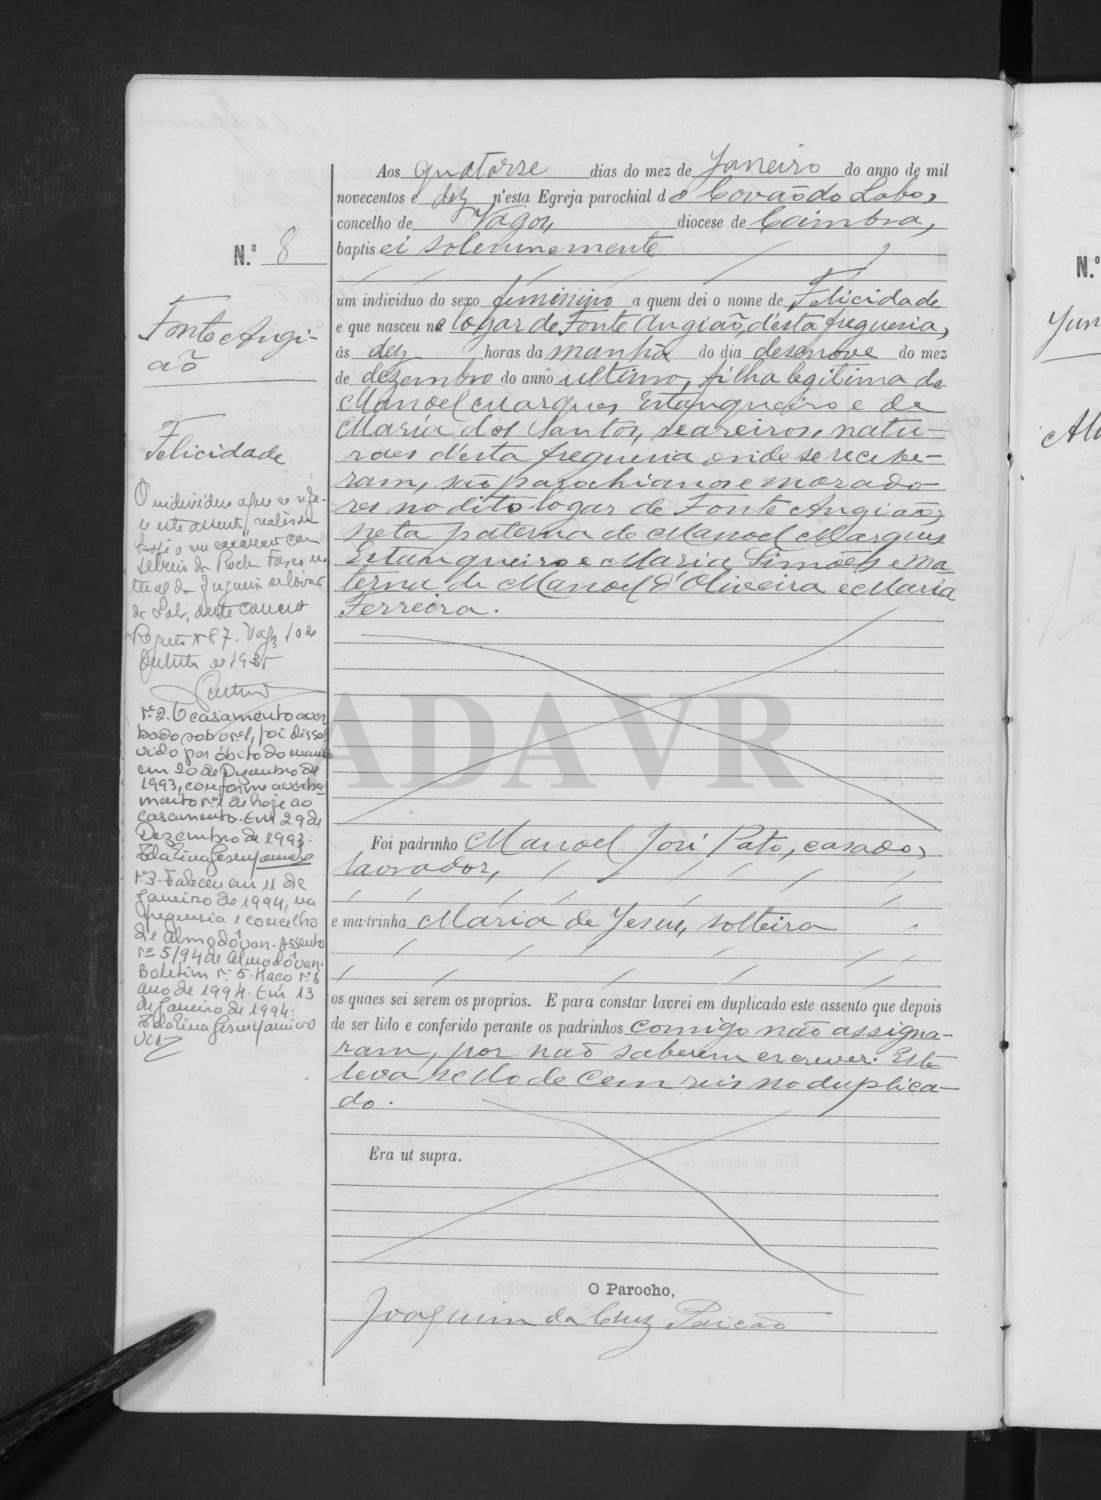 N.º 8
Fonte Angi-
ão
Felicidade
O individuo a que se refe-
re este assento, realisou
hoje o seu casamento com
da Rocha
da freguesia de Covão
do Lobo, deste concelho
Registo nº 87. Vagos, 10 de
Outubro de 1935
nº 2. O casamento aver-
bado sob o nº 1, foi dissol-
vido por óbito do marido
em 20 de Dezembro de
1993, conforme averba-
mento nº 1 de hoje ao
casamento. Em 29 de
Dezembro de 1993.
nº 3. Faleceu em 11 de
Janeiro de 1994, na
freguesia e concelho
de Almodôvar. Assento
nº 5/94 de Almodôvar.
Boletim nº 5. Maço nº 1
ano de 1994. Em 13
de Janeiro de 1994.
Aos quatorse dias do mez de Janeiro do anno de mil
novecentos e dez n'esta Egreja parochial de Covão do Lobo,
concelho de Vagos, diocese de Coimbra,
baptisei solemnemente
um individuo do sexo feminino a quem dei o nome de Felicidade
e que nasceu no logar de Fonte Angião, d'esta freguesia,
ás dez horas da manhã do dia desenove do mez
de dezembro do anno ultimo, filha legitima de
Manoel Marques Estanqueiro e de
Maria dos Santos, seareiros, natu-
raes d'esta freguesia onde se recebe-
ram, são parochianos e morado-
res no dito logar de Fonte Angião;
neta paterna de Manoel Marques
Estanqueiro e Maria Simões e ma-
terna de Manoel d'Oliveira e Maria
Ferreira.
ADAVR
Foi padrinho Manoel José Pato, casado,
lavrador,
e madrinha Maria de Jesus, solteira
os quaes sei serem os proprios. E para constar lavrei em duplicado este assento que depois
de ser lido e conferido perante os padrinhos comigo não assigna-
ram, por não saberem escrever. Este
leva sello de cem reis no duplica-
do.
Era ut supra.
O Parocho,
Joaquim da Cruz Paicão
N.º